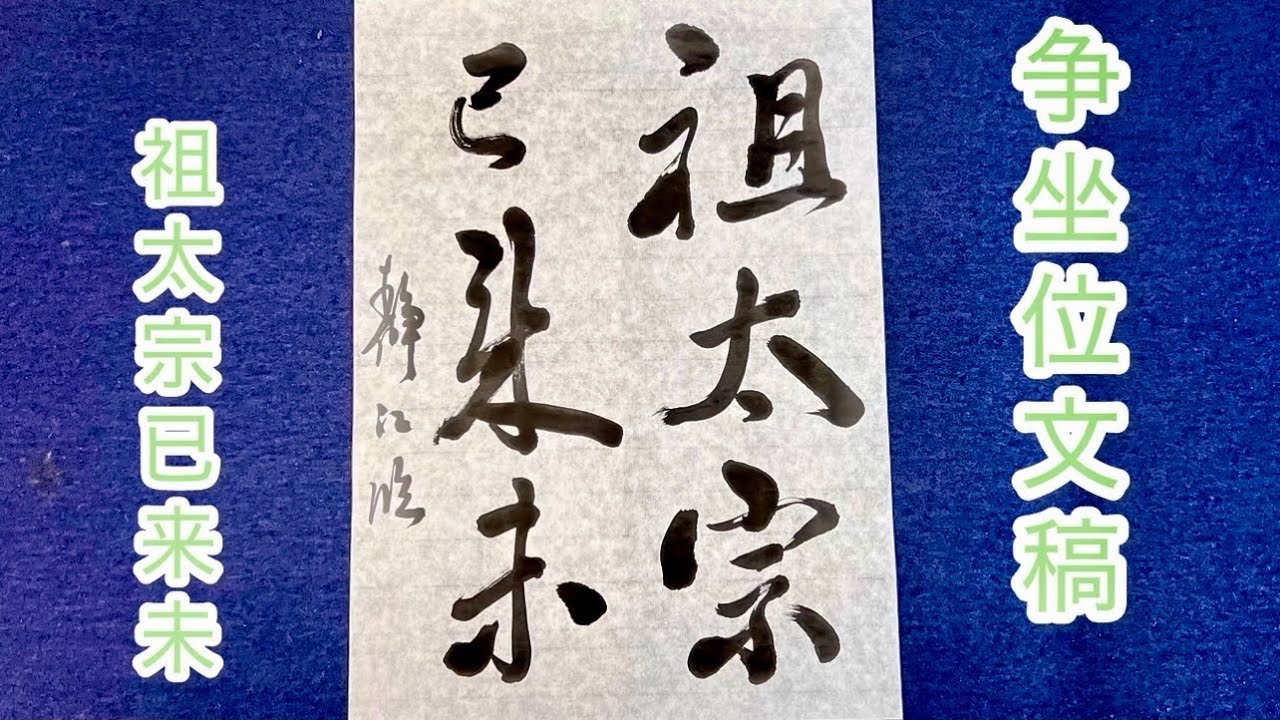 争坐位文稿
祖太宗
已来未
静江临
祖太宗已来未